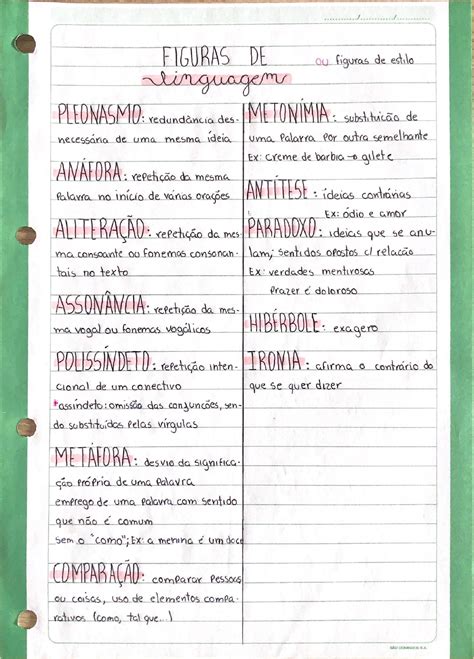 FIGURAS DE
linguagem
ou figuras de estilo
PLEONASMO: redundância des-
necessária de uma mesma ideia
ANÁFORA: repetição da mesma
palavra no início de várias orações
ALITERAÇÃO: repetição da mes-
ma consoante ou fonemas consonan-
tais no texto
ASSONÂNCIA: repetição da mes-
ma vogal ou fonemas vogálicos
POLISSÍNDETO: repetição inten-
cional de um conectivo
*assíndeto: omissão das conjuncões, sen-
do substituídas pelas vírgulas
METÁFORA: desvio da significa-
ção própria de uma palavra
emprego de uma palavra com sentido
que não é comum
sem o "como"; Ex: a menina é um doce
COMPARAÇÃO: comparar pessoas
ou coisas, uso de elementos compa-
rativos (como, tal que...)
METONÍMIA: substituicão de
uma palavra por outra semelhante
Ex: creme de barbia → gilete
ANTÍTESE: ideias contrárias
Ex: ódio e amor
PARADOXO: ideias que se anu-
lam; sentidos opostos c/ relacão
Ex: verdades mentirosas
Prazer é doloroso
HIBÉRBOLE: exagero
IRONIA: afirma o contrário do
que se quer dizer
SÃO DOMINGOS S.A.